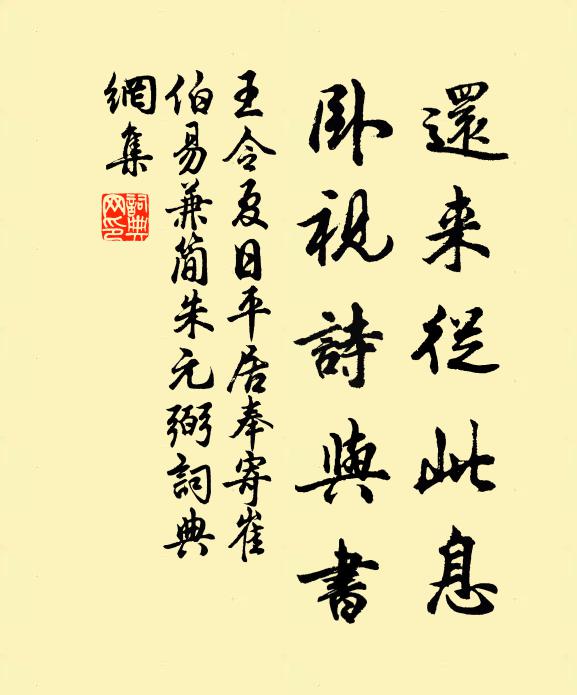 還来從此息
卧視詩與書
王令夏日平居奉寄崔
伯易兼簡朱元弼詞典
網集
詞典网印